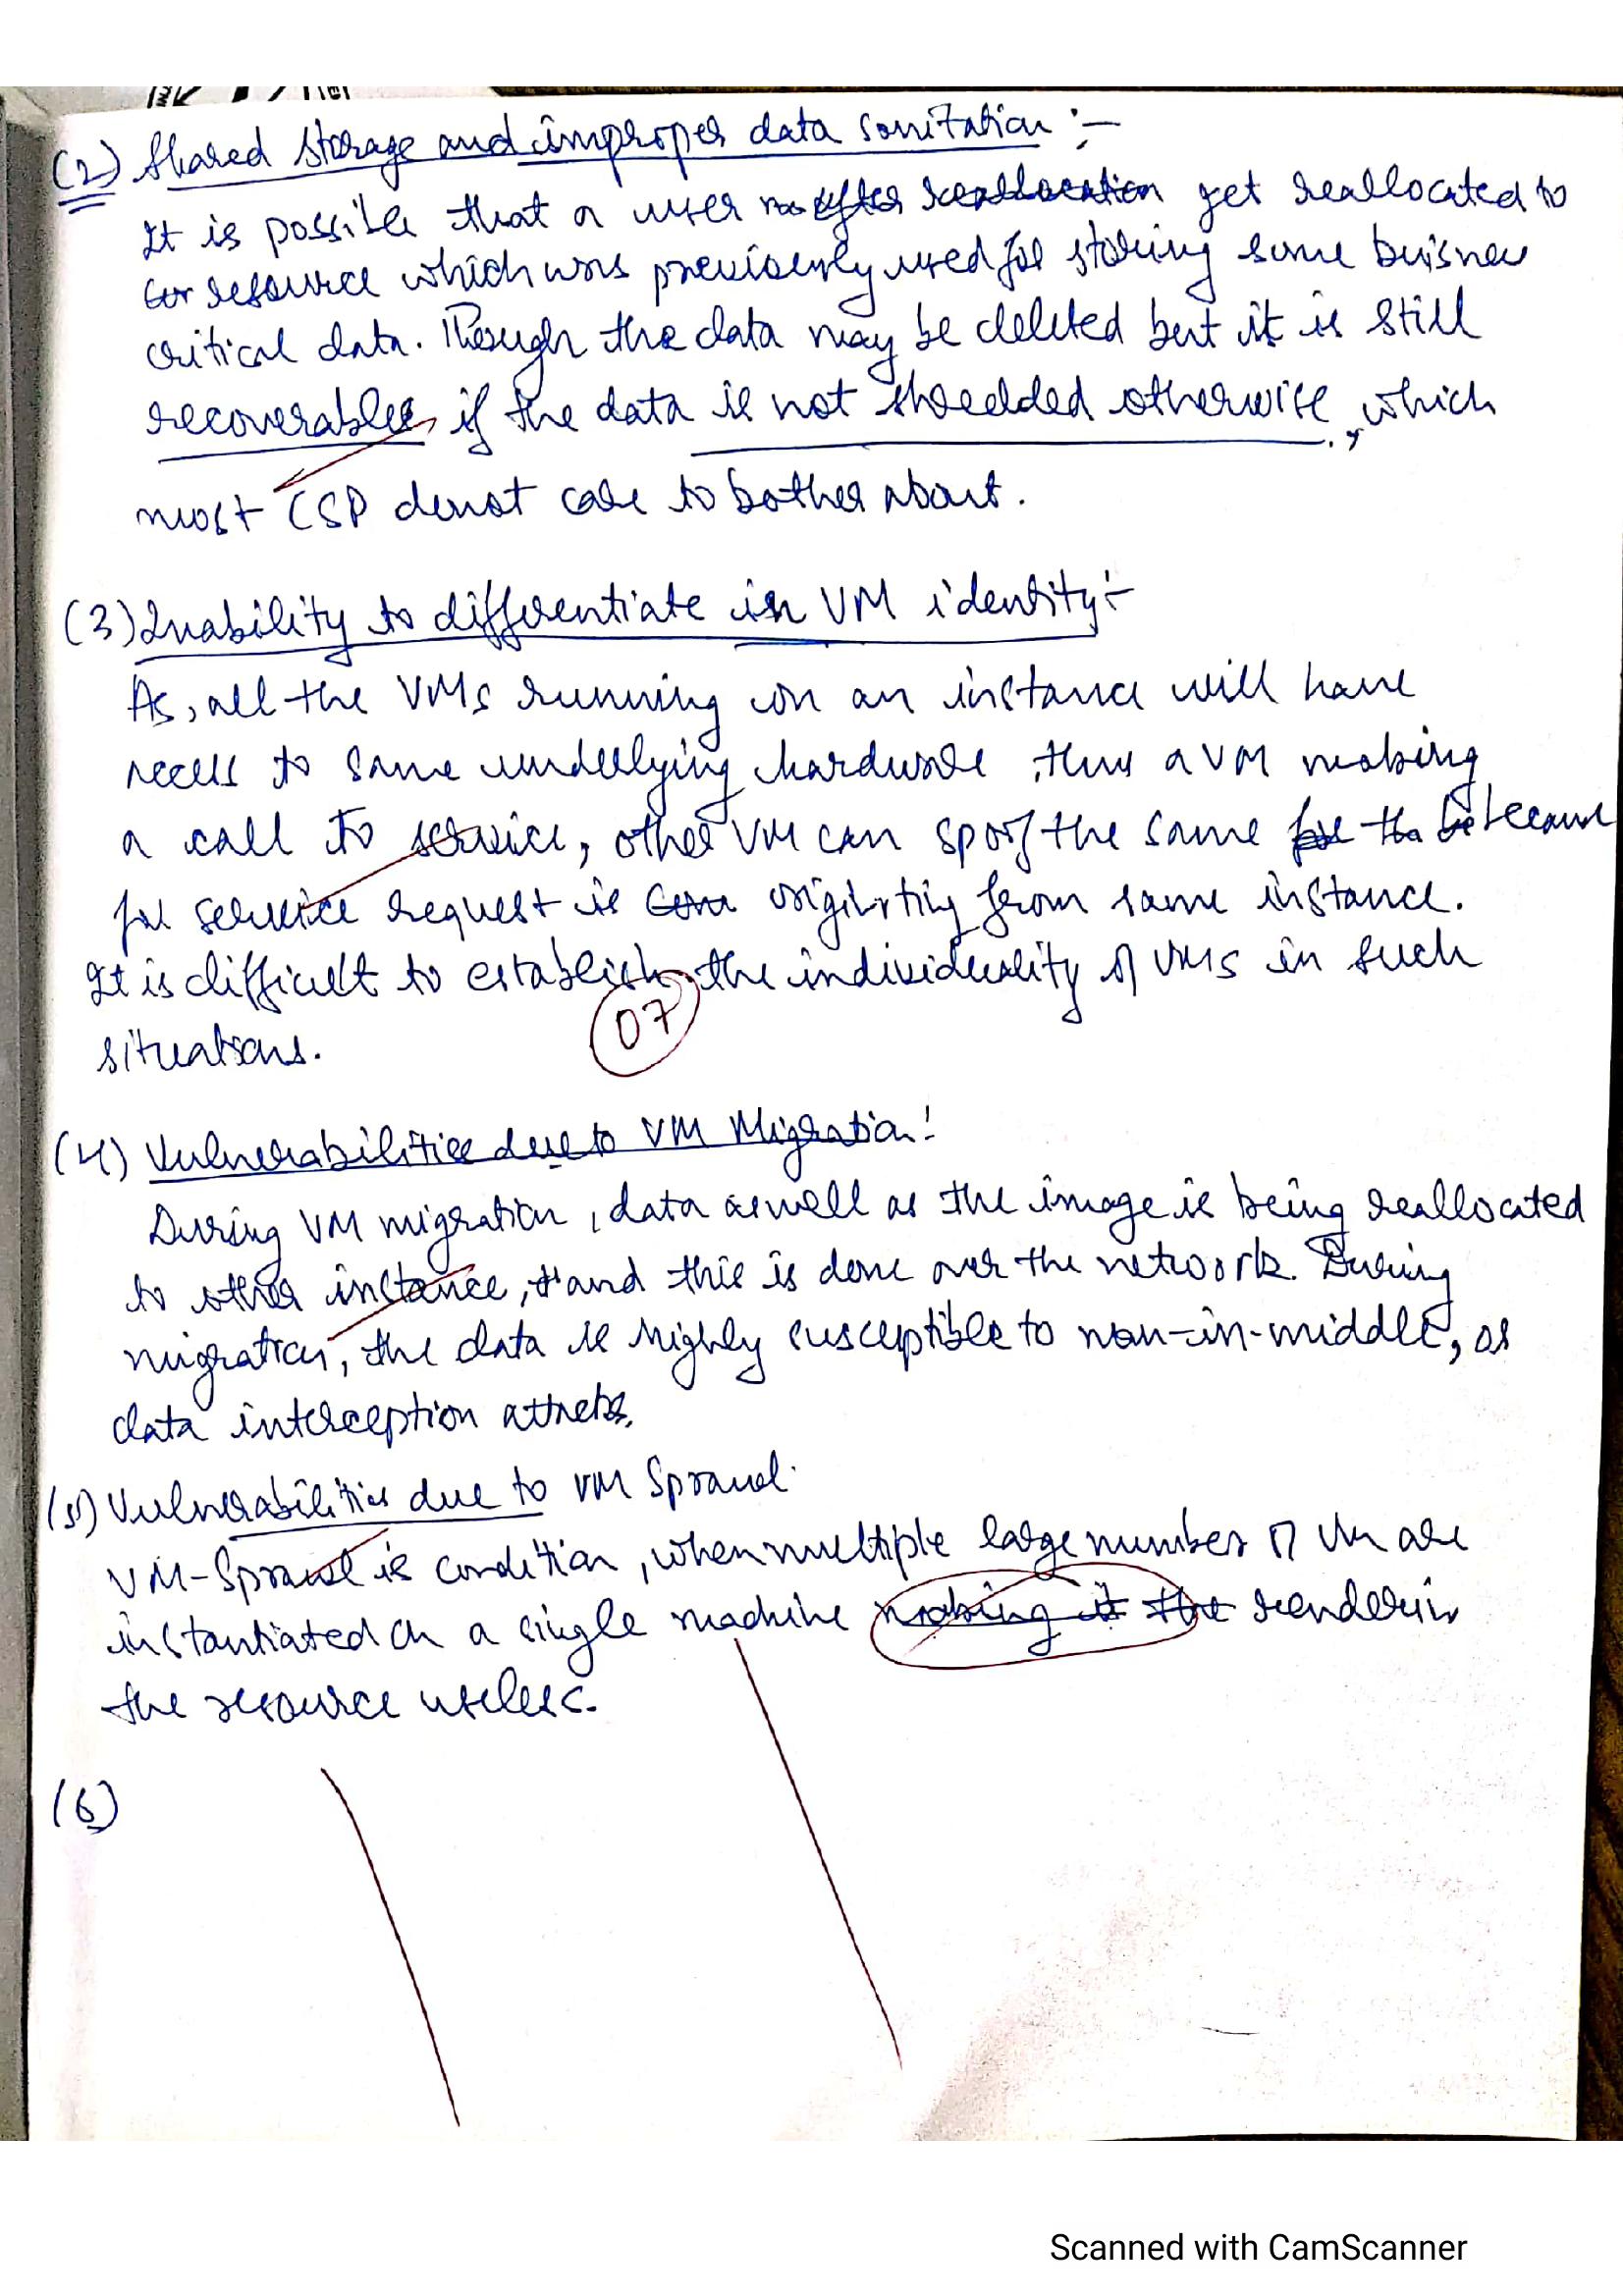 (2) Shared Storage and improper data sanitation :-
It is possible that a user after reallocation get reallocated to
resource which was previously used for storing some buisness
critical data. Though the data may be deleted but it is still
recoverable if the data is not shredded otherwise, which
most CSP donot care to bother about.
(3) Inability to differentiate in VM identity:-
As, all the VMs running on an instance will have
access to same underlying hardware, thus a VM making
a call to service, other VM can spoof the same for the because
for service request is from same instance.
It is difficult to establish the individuality of VMs in such
situations.
07
(4) Vulnerabilities due to VM Migration:
During VM migration, data aswell as the image is being reallocated
to other instance, and this is done over the network. During
migration, the data is highly susceptible to man-in-middle, or
data interception attacks.
(5) Vulnerabilities due to VM Sprawl.
VM-Sprawl is condition, when multiple large number of VM are
instantiated on a single machine making it the renderin
the resource useless.
(6)
Scanned with CamScanner